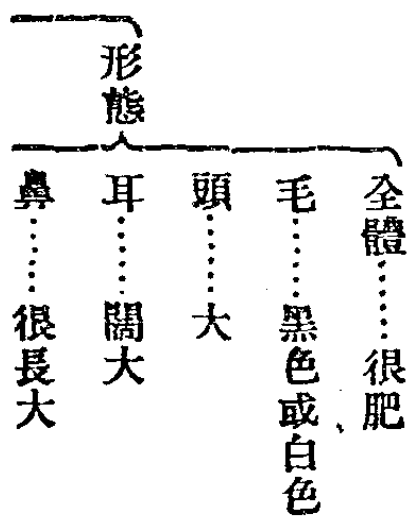 形態
全體………很肥
毛………黑色或白色
頭………大
耳………闊大
鼻………很長大